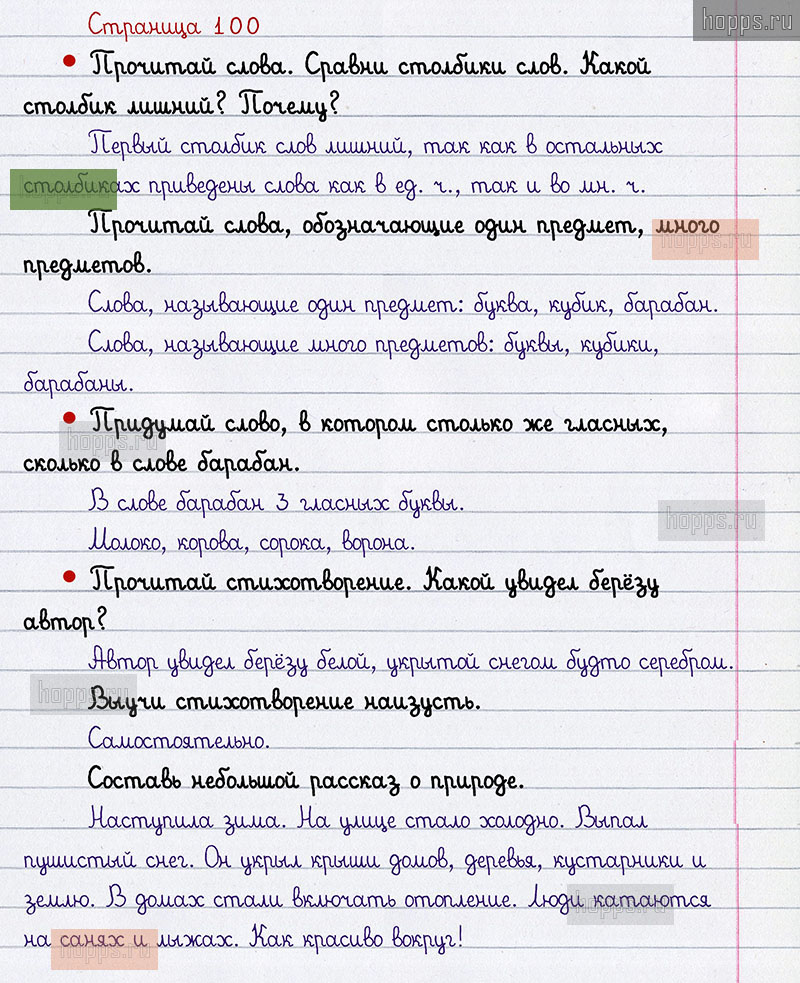 Страница 100
hopps.ru
• Прочитай слова. Сравни столбики слов. Какой
столбик лишний? Почему?
Первый столбик слов лишний, так как в остальных
столбиках приведены слова как в ед. ч., так и во мн. ч.
Прочитай слова, обозначающие один предмет, много
hopps.ru
предметов.
Слова, называющие один предмет: буква, кубик, барабан.
Слова, называющие много предметов: буквы, кубики,
барабаны.
• Придумай слово, в котором столько же гласных,
hopps.ru
сколько в слове барабан.
В слове барабан 3 гласных буквы.
hopps.ru
Молоко, корова, сорока, ворона.
• Прочитай стихотворение. Какой увидел берёзу
автор?
Автор увидел берёзу белой, укрытой снегом будто серебром.
hopps.ru
Выучи стихотворение наизусть.
Самостоятельно.
Составь небольшой рассказ о природе.
Наступила зима. На улице стало холодно. Выпал
пушистый снег. Он укрыл крыши домов, деревья, кустарники и
землю. В домах стали включать отопление. Люди катаются
hopps.ru
на санях и лыжах. Как красиво вокруг!
hopps.ru